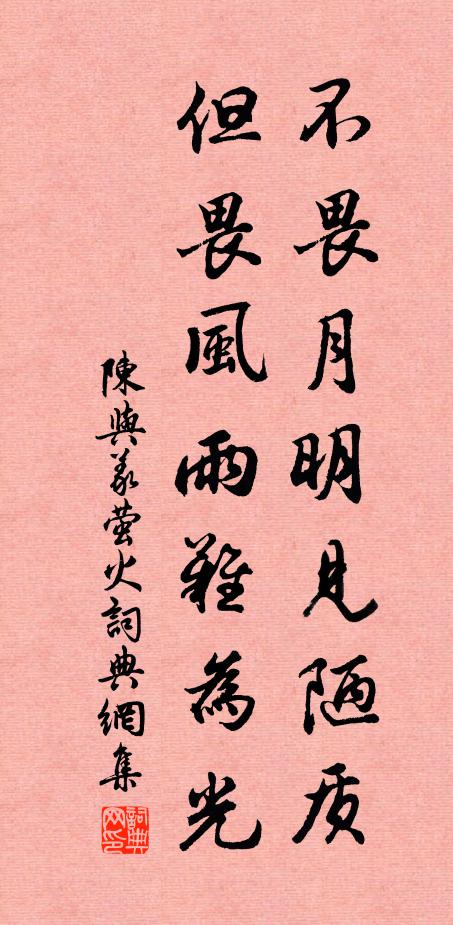 不畏月明見陋质
但畏風雨難為光
陳與义萤火詞典網集
詞典网印